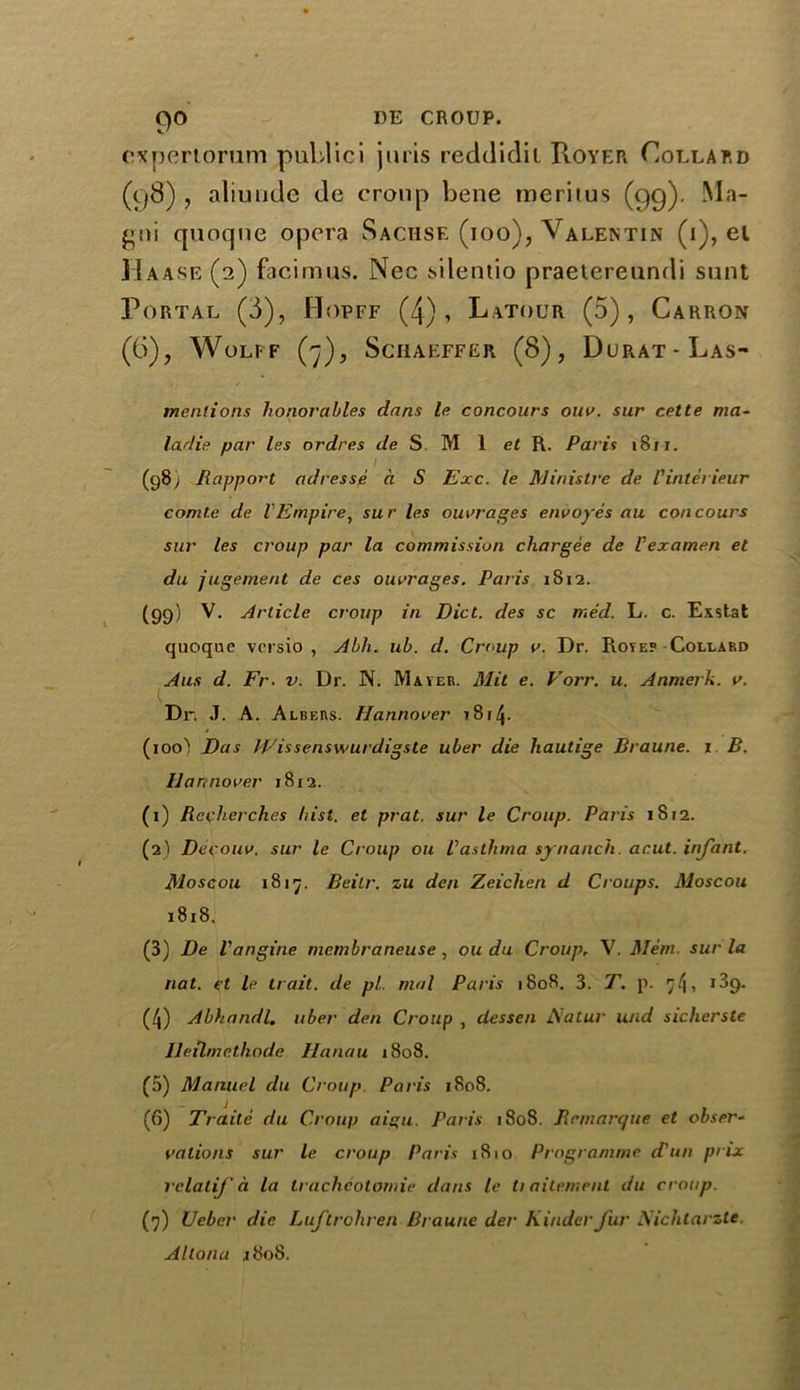 90 DE CROUP.
expertorum publici juris reddidit ROYER COLLARD
(98), aliunde de croup bene meritus (99). Ma-
gni quoque opera SACHSE (100), VALENTIN (1), et
HAASE (2) facimus. Nec silentio praetereundi sunt
PORTAL (3), HOPFF (4), LATOUR (5), CARRON
(6), WOLFF (7), SCHAEFFER (8), DURAT-LAS-
mentions honorables dans le concours ouv. sur cette ma-
ladie par les ordres de S. M I et R. Paris 1811.
(98) Rapport adressé à S Exc. le Ministre de l'intérieur
comte de l'Empire, sur les ouvrages envoyés au concours
sur les croup par la commission chargée de l'examen et
du jugement de ces ouvrages. Paris 1812.
(99) V. Article croup in Dict. des sc méd. L. c. Exstat
quoque versio , Abh. ub. d. Croup v. Dr. ROYER-COLLARD
Aus d. Fr. v. Dr. N. MAYER. Mit e. Vorr. u. Anmerk. v.
Dr. J. A. ALBERS. Hannover 1814.
(100) Das Wissenswurdigste uber die hautige Braune. 1. B.
Hannover 1812.
(1) Recherches hist. et prat. sur le Croup. Paris 1812.
(2) Decouv. sur le Croup ou l'asthma synanch. acut. infant.
Moscou 1817. Beitr. zu den Zeichen d Croups. Moscou
1818.
(3) De l'angine membraneuse, ou du Croup, V. Mém. sur la
nat. et le trait. de pl. mal Paris 1808. 3. T. p. 74, 139.
(4) Abhandl. uber den Croup , dessen Natur und sicherste
Heilmethode Hanau 1808.
(5) Manuel du Croup. Paris 1808.
(6) Traité du Croup aigu. Paris 1808. Remarque et obser-
vations sur le croup Paris 1810 Programme d'un prix
relatif à la trachéotomie dans le traitement du croup.
(7) Ueber die Luftrohren Braune der Kinder fur Nichtarzte.
Altona 1808.